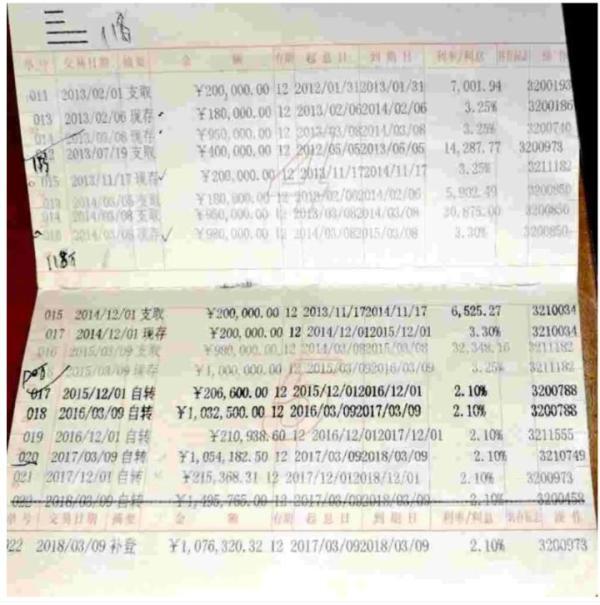 三 118
单号 交易日期 摘要 金 额 存期 起息日 到期日 利率/利息 操作
011 2013/02/01 支取 ¥200,000.00 12 2012/01/31 2013/01/31 7,001.94 3200193
013 2013/02/06 现存 ¥180,000.00 12 2013/02/06 2014/02/06 3.25% 3200186
014 2013/03/08 现存 ¥950,000.00 12 2013/03/08 2014/03/08 3.25% 3200740
2013/07/19 支取 ¥400,000.00 12 2012/05/05 2013/05/05 14,287.77 3200973
015 2013/11/17 现存 ¥200,000.00 12 2013/11/17 2014/11/17 3.25% 3211182
013 2014/03/08 支取 ¥180,000.00 12 2013/02/06 2014/02/06 3200850
014 2014/03/08 支取 ¥950,000.00 12 2013/03/08 2014/03/08 30,875.00 3200850
016 2014/03/08 现存 ¥980,000.00 12 2014/03/08 2015/03/08 3.30% 3200850
118万
015 2014/12/01 支取 ¥200,000.00 12 2013/11/17 2014/11/17 6,525.27 3210034
017 2014/12/01 现存 ¥200,000.00 12 2014/12/01 2015/12/01 3.30% 3210034
016 2015/03/09 支取 ¥980,000.00 12 2014/03/08 2015/03/08 32,348.16 3211182
2015/03/09 现存 ¥1,000,000.00 12 2015/03/09 2016/03/09 3.25% 3211182
017 2015/12/01 自转 ¥206,600.00 12 2015/12/01 2016/12/01 2.10% 3200788
018 2016/03/09 自转 ¥1,032,500.00 12 2016/03/09 2017/03/09 2.10% 3200788
019 2016/12/01 自转 ¥210,938.60 12 2016/12/01 2017/12/01 2.10% 3211555
020 2017/03/09 自转 ¥1,054,182.50 12 2017/03/09 2018/03/09 2.10% 3210749
021 2017/12/01 自转 ¥215,368.31 12 2017/12/01 2018/12/01 2.10% 3200973
022 2018/03/09 自转 ¥1,495,765.00 12 2017/03/09 2018/03/09 2.10% 3200458
单号 交易日期 摘要 金 额 存期 起息日 到期日 利率/利息 操作
022 2018/03/09 补登 ¥1,076,320.32 12 2017/03/09 2018/03/09 2.10% 3200973